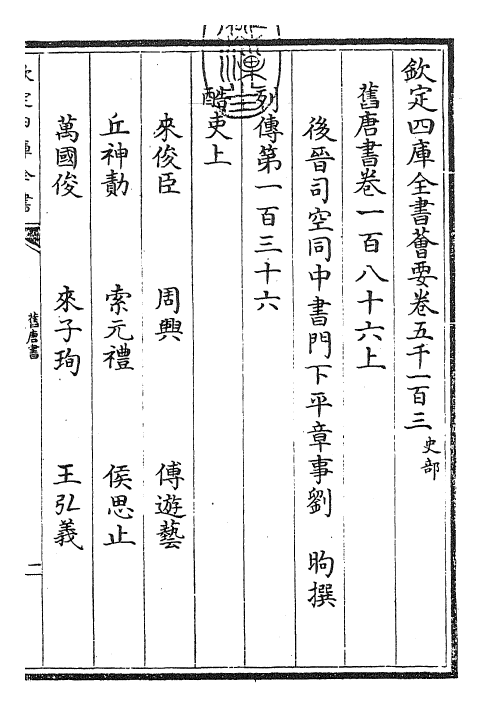 欽定四庫全書薈要卷五千一百三 史部
舊唐書卷一百八十六上
後晉司空同中書門下平章事劉 昫撰
列傳第一百三十六
酷吏上
來俊臣 周興 傅遊藝
丘神勣 索元禮 侯思止
萬國俊 來子珣 王弘義
欽定四庫全書
舊唐書